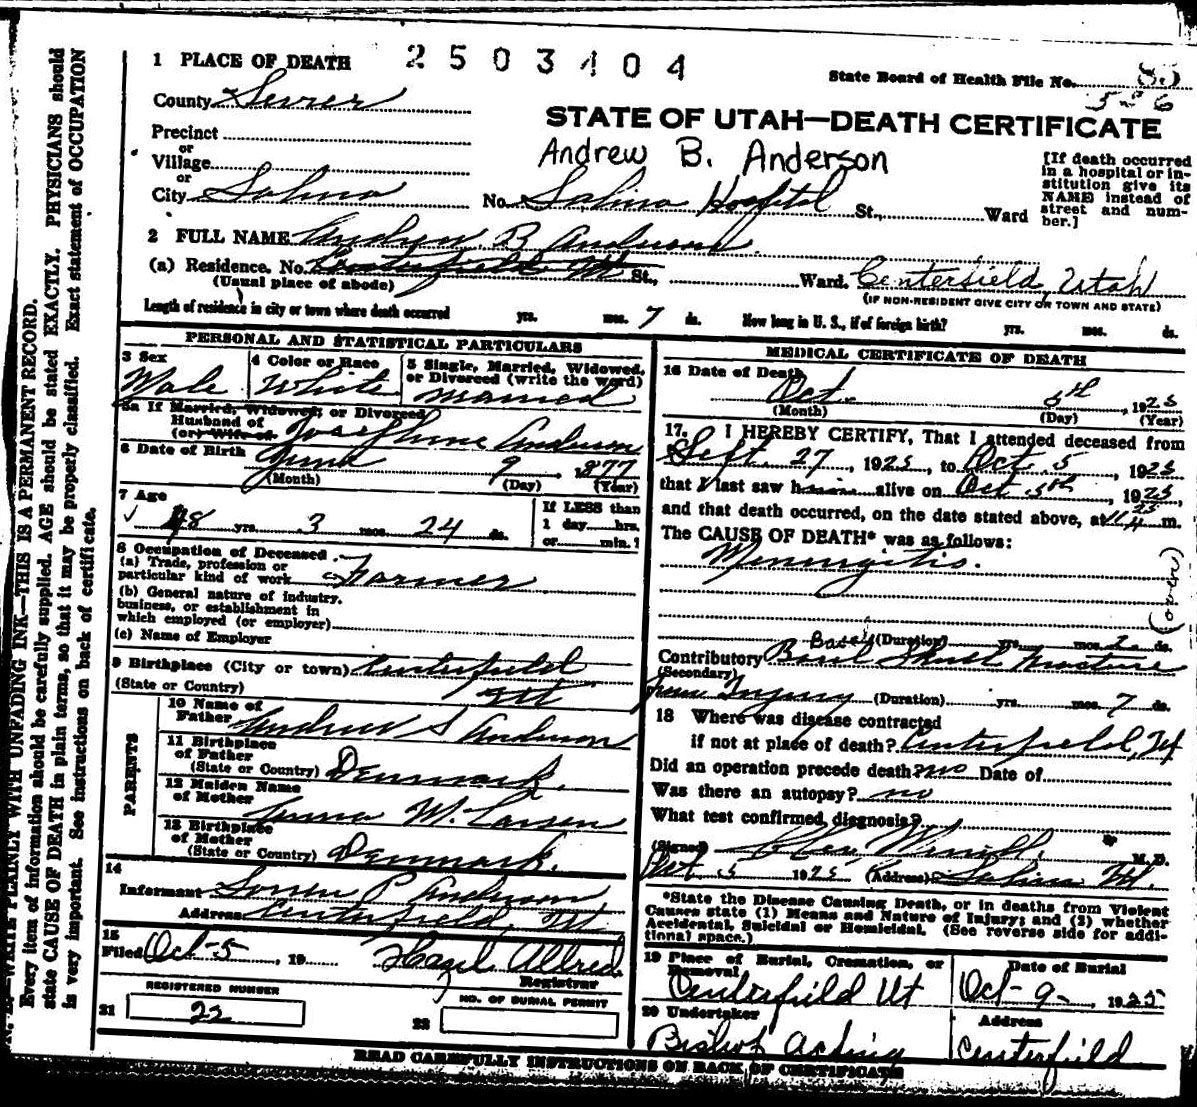 1 PLACE OF DEATH 2503404
State Board of Health File No. 85
County Sevier 536
STATE OF UTAH—DEATH CERTIFICATE
Precinct
or
Village
or
City Salina
Andrew B. Anderson
No. Salina Hospital St., Ward
[If death occurred
in a hospital or in-
stitution give its
NAME instead of
street and num-
ber.]
2 FULL NAME Andrew B Anderson
(a) Residence. No. Centerfield Ut St., Ward. Centerfield, Utah
(Usual place of abode) (IF NON-RESIDENT GIVE CITY OR TOWN AND STATE)
Length of residence in city or town where death occurred yrs. mos. 7 ds. How long in U. S., if of foreign birth? yrs. mos. ds.
PERSONAL AND STATISTICAL PARTICULARS
3 Sex
Male
4 Color or Race
White
5 Single, Married, Widowed,
or Divorced (write the word)
Married
5a If Married, Widowed, or Divorced
Husband of
(or) Wife of Josephine Anderson
6 Date of Birth June 9 1877
(Month) (Day) (Year)
7 Age
48 yrs. 3 mos. 24 ds.
If LESS than
1 day hrs.
or min.?
8 Occupation of Deceased
(a) Trade, profession or
particular kind of work Farmer
(b) General nature of industry,
business, or establishment in
which employed (or employer)
(c) Name of Employer
9 Birthplace (City or town) Centerfield
(State or Country) Ut
PARENTS
10 Name of
Father Andrew S Anderson
11 Birthplace
of Father
(State or Country) Denmark.
12 Maiden Name
of Mother M. Larsen
13 Birthplace
of Mother
(State or Country) Denmark.
14
Informant Soren P Anderson
Address Centerfield, Ut
15
Filed Oct-5, 19 Hazel Allred
Registrar
REGISTERED NUMBER
21 22
NO. OF BURIAL PERMIT
22
MEDICAL CERTIFICATE OF DEATH
16 Date of Death
Oct. 5th, 1925
(Month) (Day) (Year)
17. I HEREBY CERTIFY, That I attended deceased from
Sept. 27, 1925, to Oct. 5, 1925
that I last saw him alive on Oct 5th, 1925,
and that death occurred, on the date stated above, at m.
The CAUSE OF DEATH* was as follows:
Meningitis.
(over)
(Duration) yrs. mos. 2 ds.
Basal
Contributory Basal Skull Fracture
(Secondary)
from Injury (Duration) yrs. mos. 7 ds.
18 Where was disease contracted
if not at place of death? Centerfield, Ut
Did an operation precede death? no Date of
Was there an autopsy? no
What test confirmed diagnosis?
(Signed) M.D.
Oct 5 1925 (Address) Salina Ut.
*State the Disease Causing Death, or in deaths from Violent
Causes state (1) Means and Nature of Injury; and (2) whether
Accidental, Suicidal or Homicidal. (See reverse side for addi-
tional space.)
19 Place of Burial, Cremation, or
Removal
Centerfield Ut
Date of Burial
Oct-9-, 1925
20 Undertaker
Bishop acting
Address
Centerfield
READ CAREFULLY INSTRUCTIONS ON BACK OF CERTIFICATE
N. B.—WRITE PLAINLY WITH UNFADING INK—THIS IS A PERMANENT RECORD.
Every item of information should be carefully supplied. AGE should be stated EXACTLY. PHYSICIANS should
state CAUSE OF DEATH in plain terms, so that it may be properly classified. Exact statement of OCCUPATION
is very important. See instructions on back of certificate.